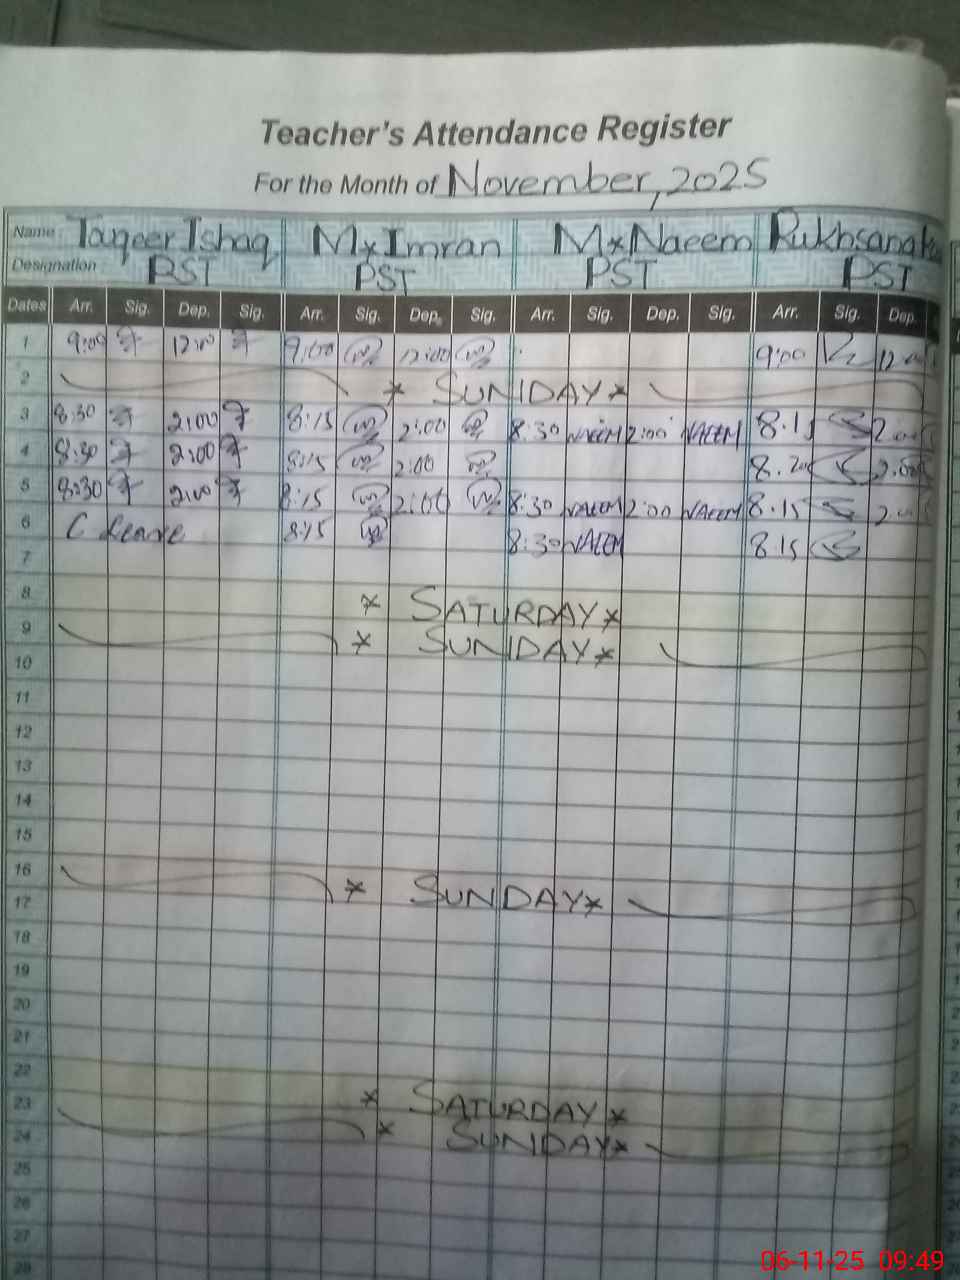 Teacher's Attendance Register
For the Month of November, 2025
Name Tauqeer Ishaq M x Imran M x Naeem Rukhsana
Designation PST PST PST PST
Dates Arr. Sig. Dep. Sig. Arr. Sig. Dep. Sig. Arr. Sig. Dep. Sig. Arr. Sig. Dep.
1 9:00 12:00 9:00 12:00 9:00
2 * SUNDAY *
3 8:30 2:00 8:15 2:00 8:30 NAEEM 2:00 NAEEM 8.15
4 8:30 2:00 8:15 2:00 2:00
5 8:30 2:00 8:15 2:00 8:30 NAEEM 2:00 NAEEM 8.15
6 C Leave 8:15 8:30 NAEEM 8.15
7
8 * SATURDAY *
9 * SUNDAY *
10
11
12
13
14
15
16 * SUNDAY *
17
18
19
20
21
22 * SATURDAY *
23 * SUNDAY *
24
25
26
27
28
06-11-25 09:49